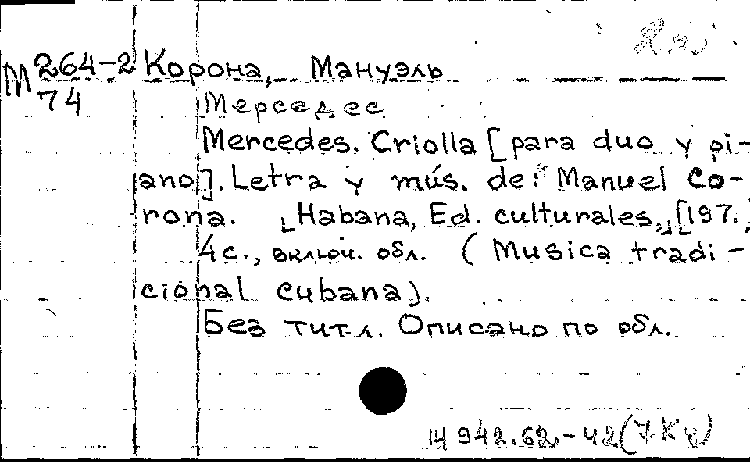 М 264-2 Корона, Мануэль
74 Мерседес
Mercedes. Criolla [para duo y pi-
ano]. Letra y mús. de: Manuel Co-
rona. Habana, Ed. culturales, [197.
4 с., включ. обл. (Musica tradi-
cional cubana).
Без тит. л. Описано по обл.
14 942.62-42 (7 Ку)